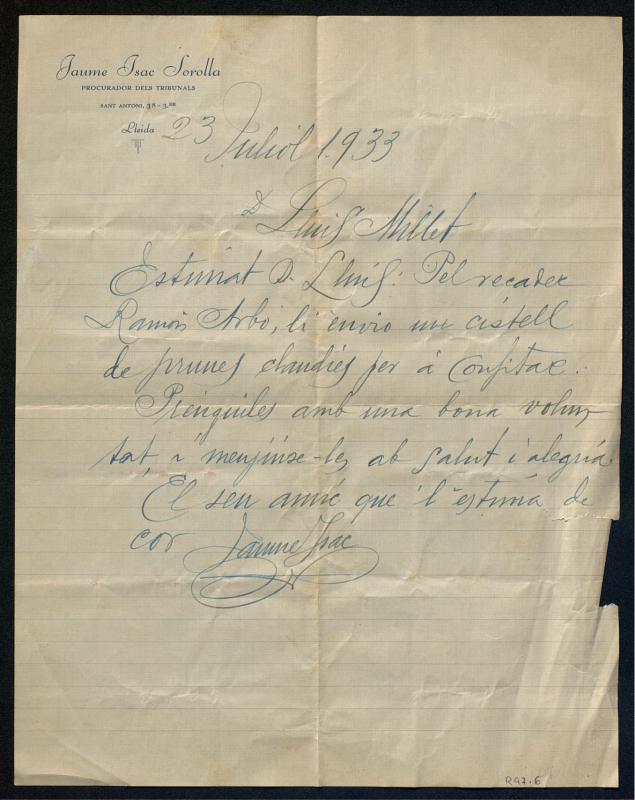 Jaume Isac Sorolla
PROCURADOR DELS TRIBUNALS
SANT ANTONI, 38 - 3.ER
Lleida
23 Juliol 1933
D. Lluis Millet
Estimat D. Lluis: Pel recader
Ramón Arbó, li envio un cistell
de prunes claudies per á confitar.
Prenguiles amb una bona volun-
tat, i menjinse-les ab salut i alegria
El seu amic que l'estima de
cor Jaume Isac
R97.6